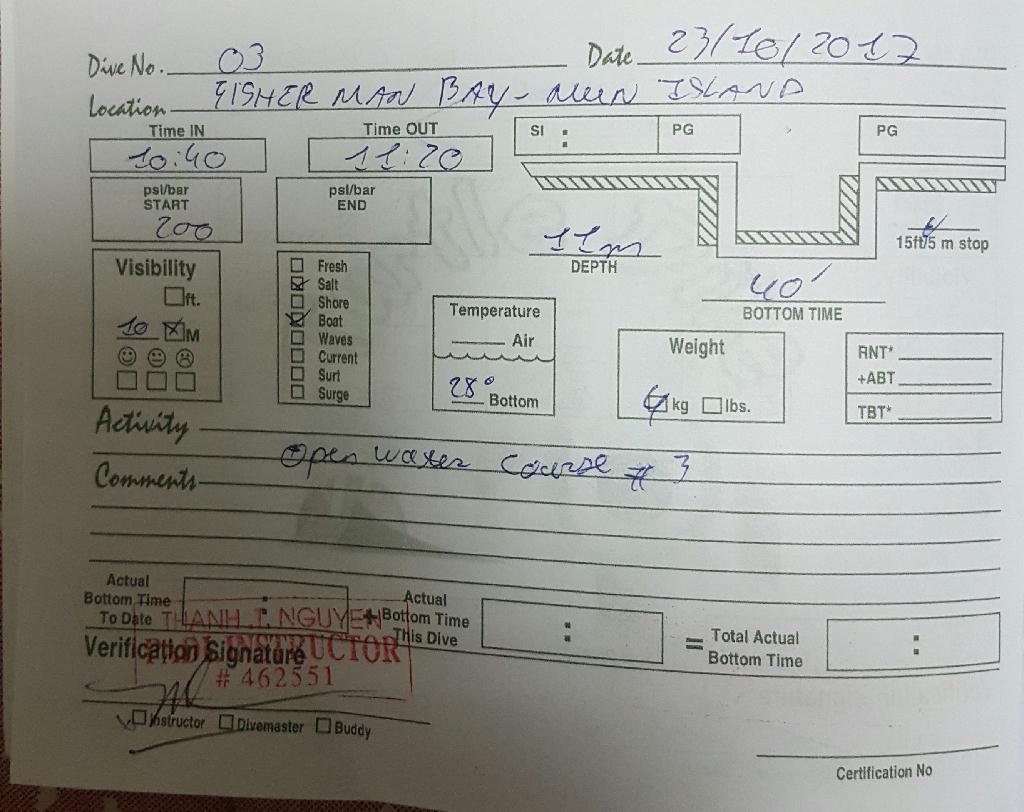 Dive No. 03 Date 23/10/2017
Location FISHER MAN BAY - MUN ISLAND
Time IN Time OUT SI : PG PG
10:40 11:20
psl/bar START psl/bar END
200
11m DEPTH
15ft/5 m stop
40' BOTTOM TIME
Visibility
ft.
10 M
Fresh
Salt
Shore
Boat
Waves
Current
Surt
Surge
Temperature
Air
28° Bottom
Weight
kg lbs.
RNT*
+ABT
TBT*
Activity
Open water course # 3
Comments
Actual Bottom Time To Date : + Actual Bottom Time This Dive : = Total Actual Bottom Time :
THANH .T. NGUYEN
PADI INSTRUCTOR
# 462551
Verification Signature
Instructor Divemaster Buddy
Certification No